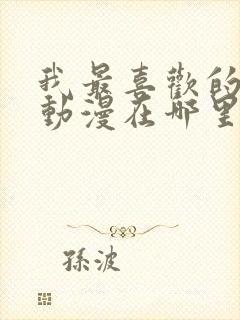 我最喜歡的
動漫在哪里
孫波